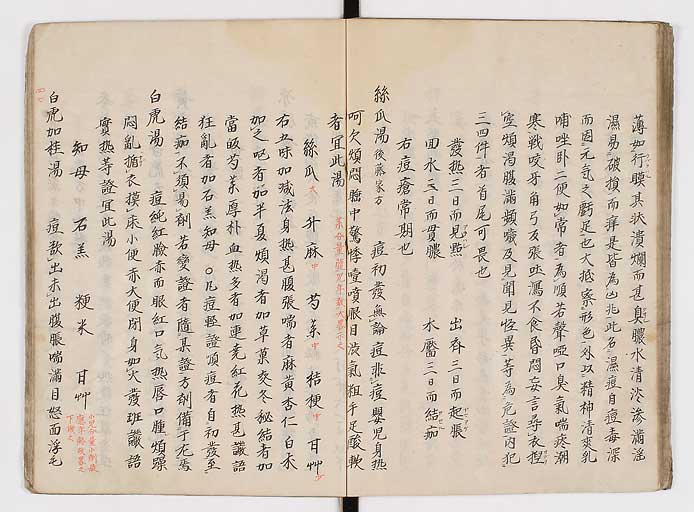 薄如行膜其状潰爛而甚臭膿水清淡滲満淫
濕易破損而痒是皆為凶兆此名濕痘自痘毒深
而因元気之虧足也大抵察形色外以精神清爽乳
哺唑卧二便如常者為順若聲啞口臭氣喘疼潮
寒戦咬牙角弓反張吐瀉不食昏悶妄言尋衣揑
空煩渇腹満頻嗽及見聞見怪異等為危證内犯
三四件者首尾可畏也
發熱三日而見点 出齊三日而起脹
回水三日而貫膿 水靨三日而結痂
右痘瘡常期也
絲瓜湯 後藤家方 痘初發無論痘非痘嬰児身熱
呵欠煩悶睡中驚悸嚏噴眼目渋氣粗手足酸軟
者宜此湯
絲瓜 大 升麻 中 芍薬 中 桔梗 中 甘艸 少
右五味加減法身熱甚腹張喘者麻黄杏仁白朮
加之呕者加半夏煩渇者加草菓麦冬秘結者加
當皈芍薬厚朴血熱多者加連翹紅花熱甚讝語
狂亂者加石羔知母 ○凡痘輕證順痘者自初發至
結痂不須易剤若變證者隨某證方剤備于左焉
白虎湯 痘純紅臉赤而眼紅口氣熱唇口腫煩躁
悶亂循衣摸床小便赤大便閉身如火發班讝語
實熱等證宜此湯
知母 石羔 粳米 甘艸
白虎加桂湯 痘欲出未出腹脹喘満目怒面浮毛